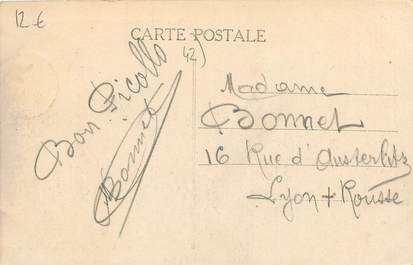 12 €
CARTE POSTALE
42)
Bon Picollo
Bonnet
Madame
Bonnet
16 Rue d'Austerlitz
Lyon + Rousse